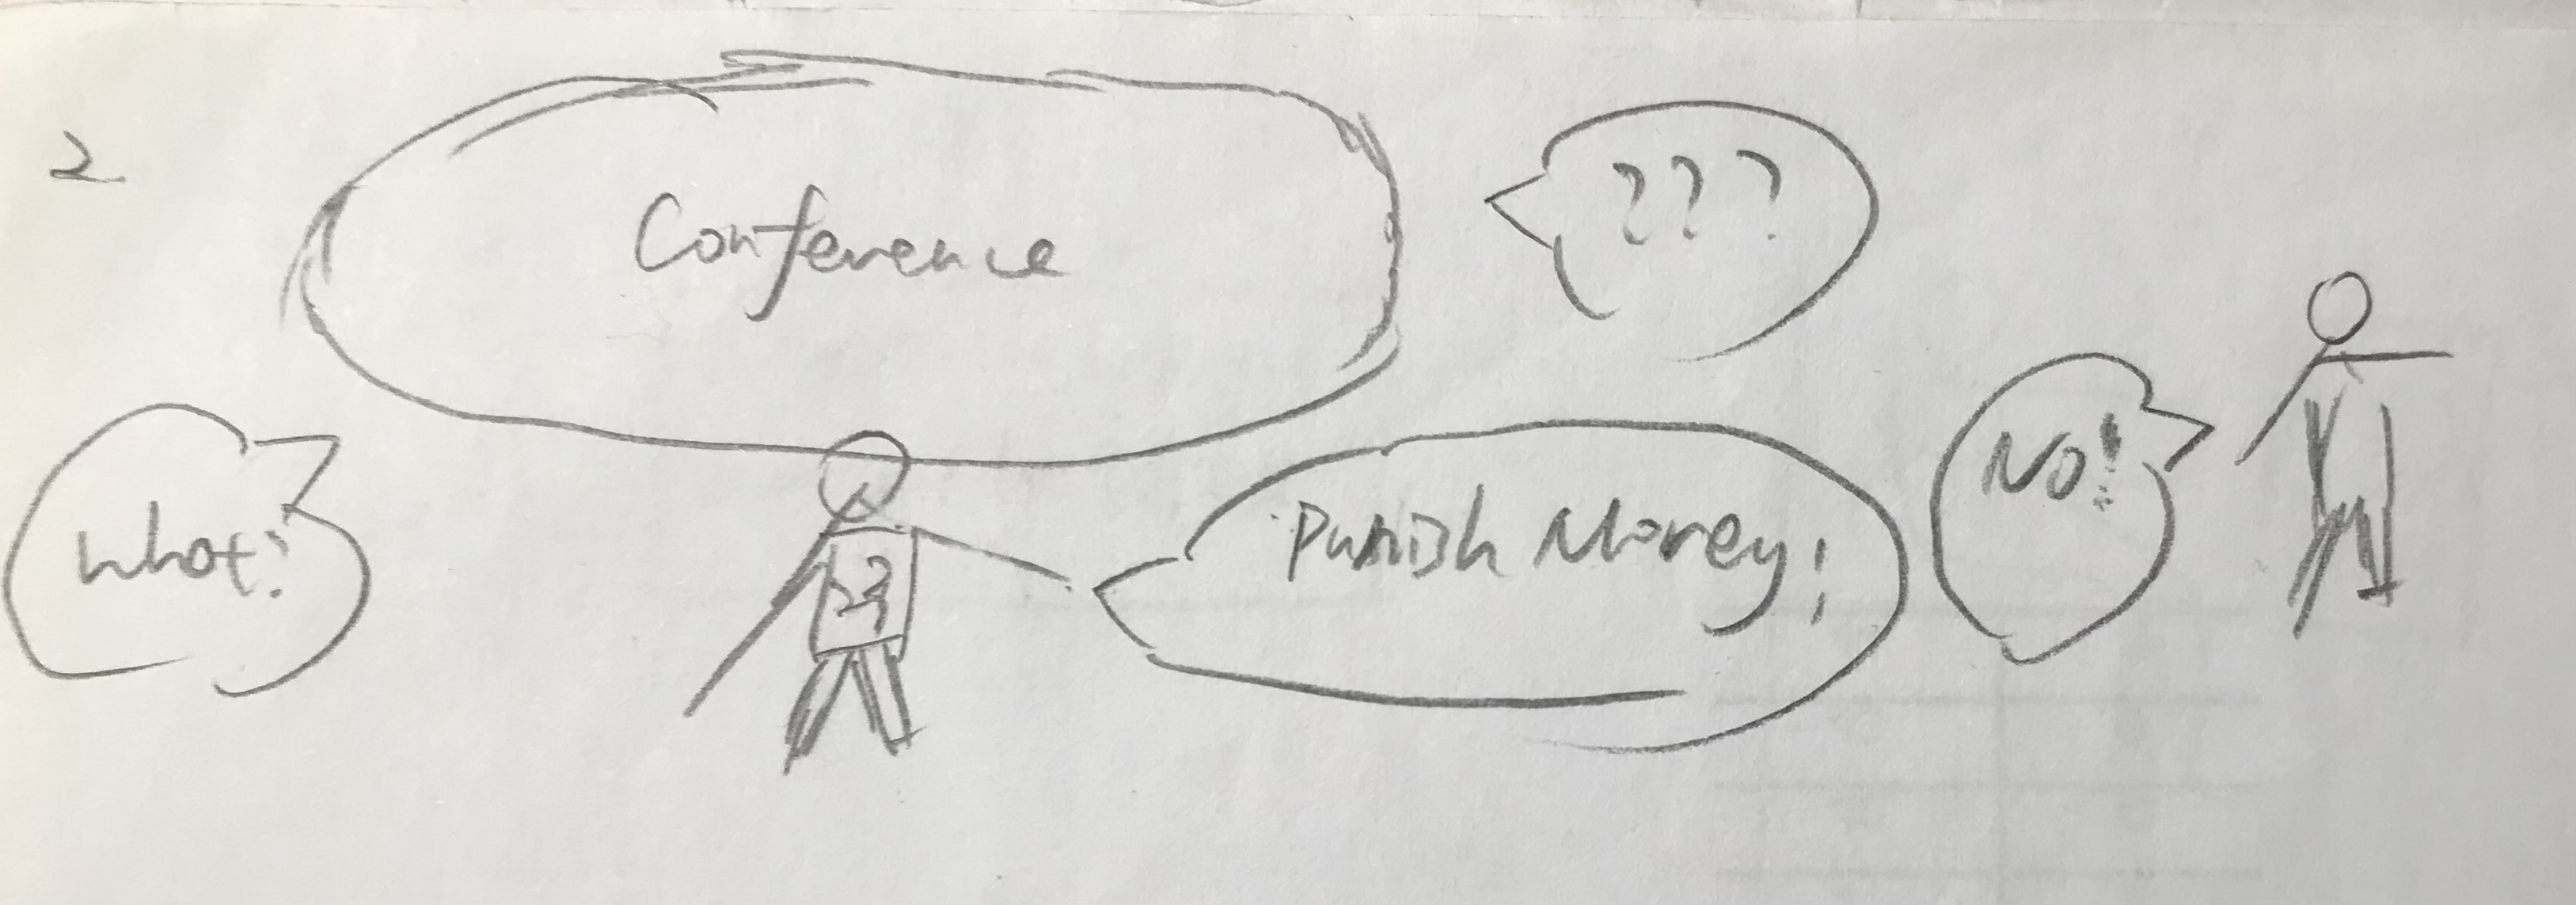 2
Conference
???
What?
23
Punish Money!
No!